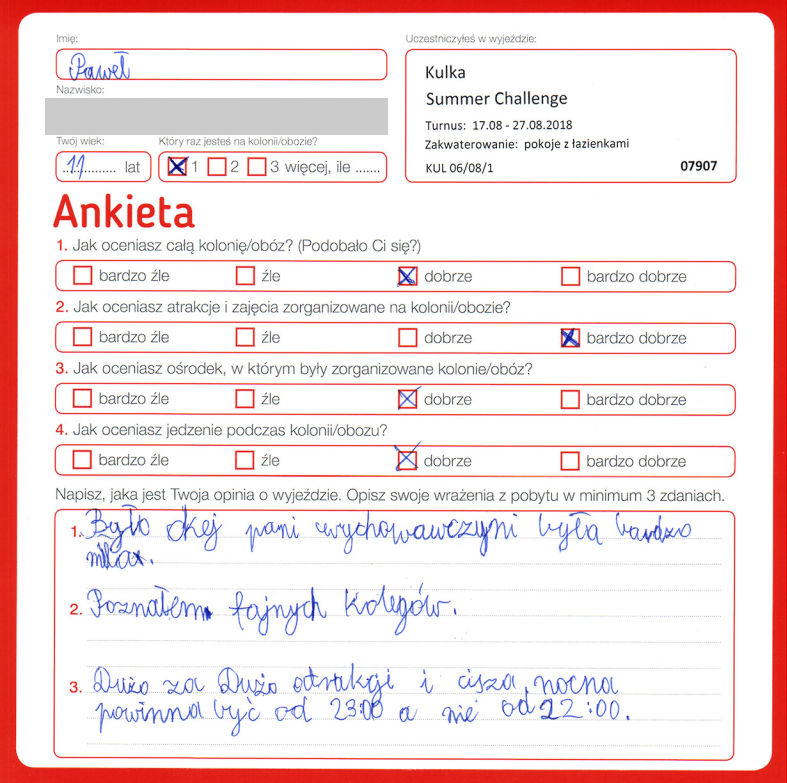 Imię:
Paweł
Nazwisko:
Twój wiek:
11 lat
Który raz jesteś na kolonii/obozie?
1 2 3 więcej, ile .......
Uczestniczyłeś w wyjeździe:
Kulka
Summer Challenge
Turnus: 17.08 - 27.08.2018
Zakwaterowanie: pokoje z łazienkami
KUL 06/08/1 07907
Ankieta
1. Jak oceniasz całą kolonię/obóz? (Podobało Ci się?)
bardzo źle źle dobrze bardzo dobrze
2. Jak oceniasz atrakcje i zajęcia zorganizowane na kolonii/obozie?
bardzo źle źle dobrze bardzo dobrze
3. Jak oceniasz ośrodek, w którym były zorganizowane kolonie/obóz?
bardzo źle źle dobrze bardzo dobrze
4. Jak oceniasz jedzenie podczas kolonii/obozu?
bardzo źle źle dobrze bardzo dobrze
Napisz, jaka jest Twoja opinia o wyjeździe. Opisz swoje wrażenia z pobytu w minimum 3 zdaniach.
1. Było okej pani wychowawczyni była bardzo
miła.
2. Poznałem fajnych kolegów.
3. Dużo za Dużo atrakcji i cisza nocna
powinna być od 23:00 a nie od 22:00.